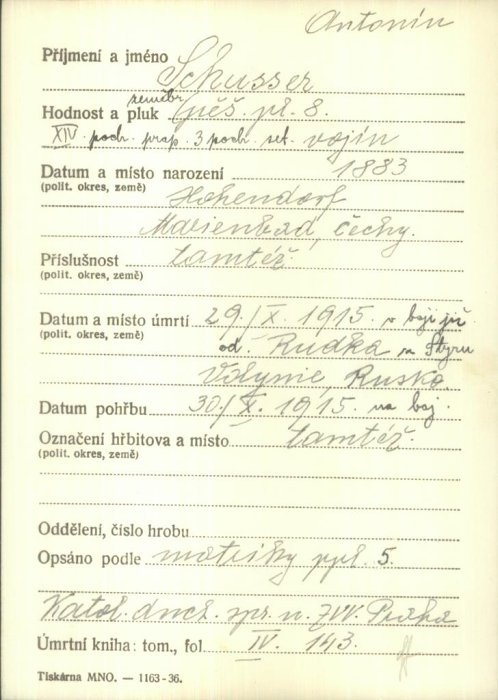 Antonín
Příjmení a jméno Schusser
zeměbr.
Hodnost a pluk pěš. pl. 8.
XIV. poch. prap. 3 poch. set. vojín
Datum a místo narození 1883
(polit. okres, země) Hohendorf
Marienbad, Čechy.
Příslušnost tamtéž
(polit. okres, země)
Datum a místo úmrtí 29./X. 1915. v boji již
(polit. okres, země) od. Rudka na Styru
Volynie, Rusko.
Datum pohřbu 30./X. 1915. na boj.
Označení hřbitova a místo tamtéž.
(polit. okres, země)
Oddělení, číslo hrobu
Opsáno podle matriky ppl. 5.
Katol. duch. spr. n. ZVV. Praha
Úmrtní kniha: tom., fol. IV. 143.
Tiskárna MNO. — 1163-36.